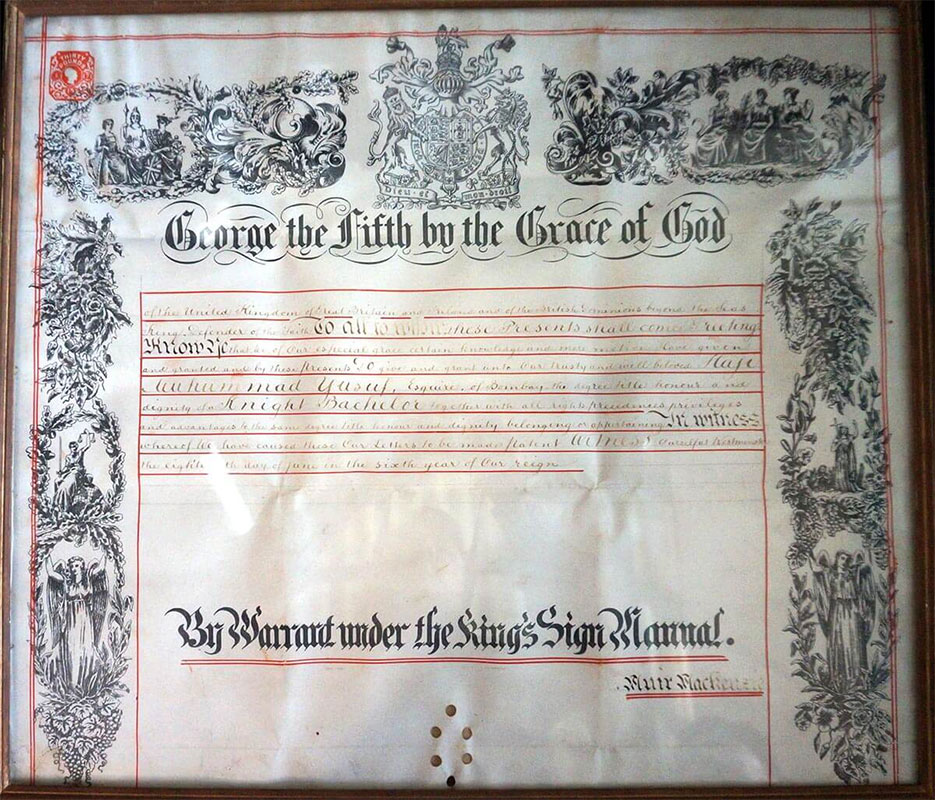 THIRTY
POUNDS
Dieu et mon droit
George the Fifth by the Grace of God
of the United Kingdom of Great Britain and Ireland and of the British Dominions beyond the Seas
King Defender of the Faith To all to whom these Presents shall come Greeting
Know Ye that We of Our especial grace certain knowledge and mere motion have given
and granted and by these Presents Do give and grant unto Our trusty and well beloved Haji
Muhummad Yusuf, Esquire, of Bombay the degree title honour and
dignity of a Knight Bachelor together with all rights precedences privileges
and advantages to the same degree title honour and dignity belonging or appertaining In witness
whereof We have caused these Our Letters to be made Patent Witness Ourself at Westminster
the day of June in the sixth year of Our reign
By Warrant under the King's Sign Manual.
Muir Mackenzie